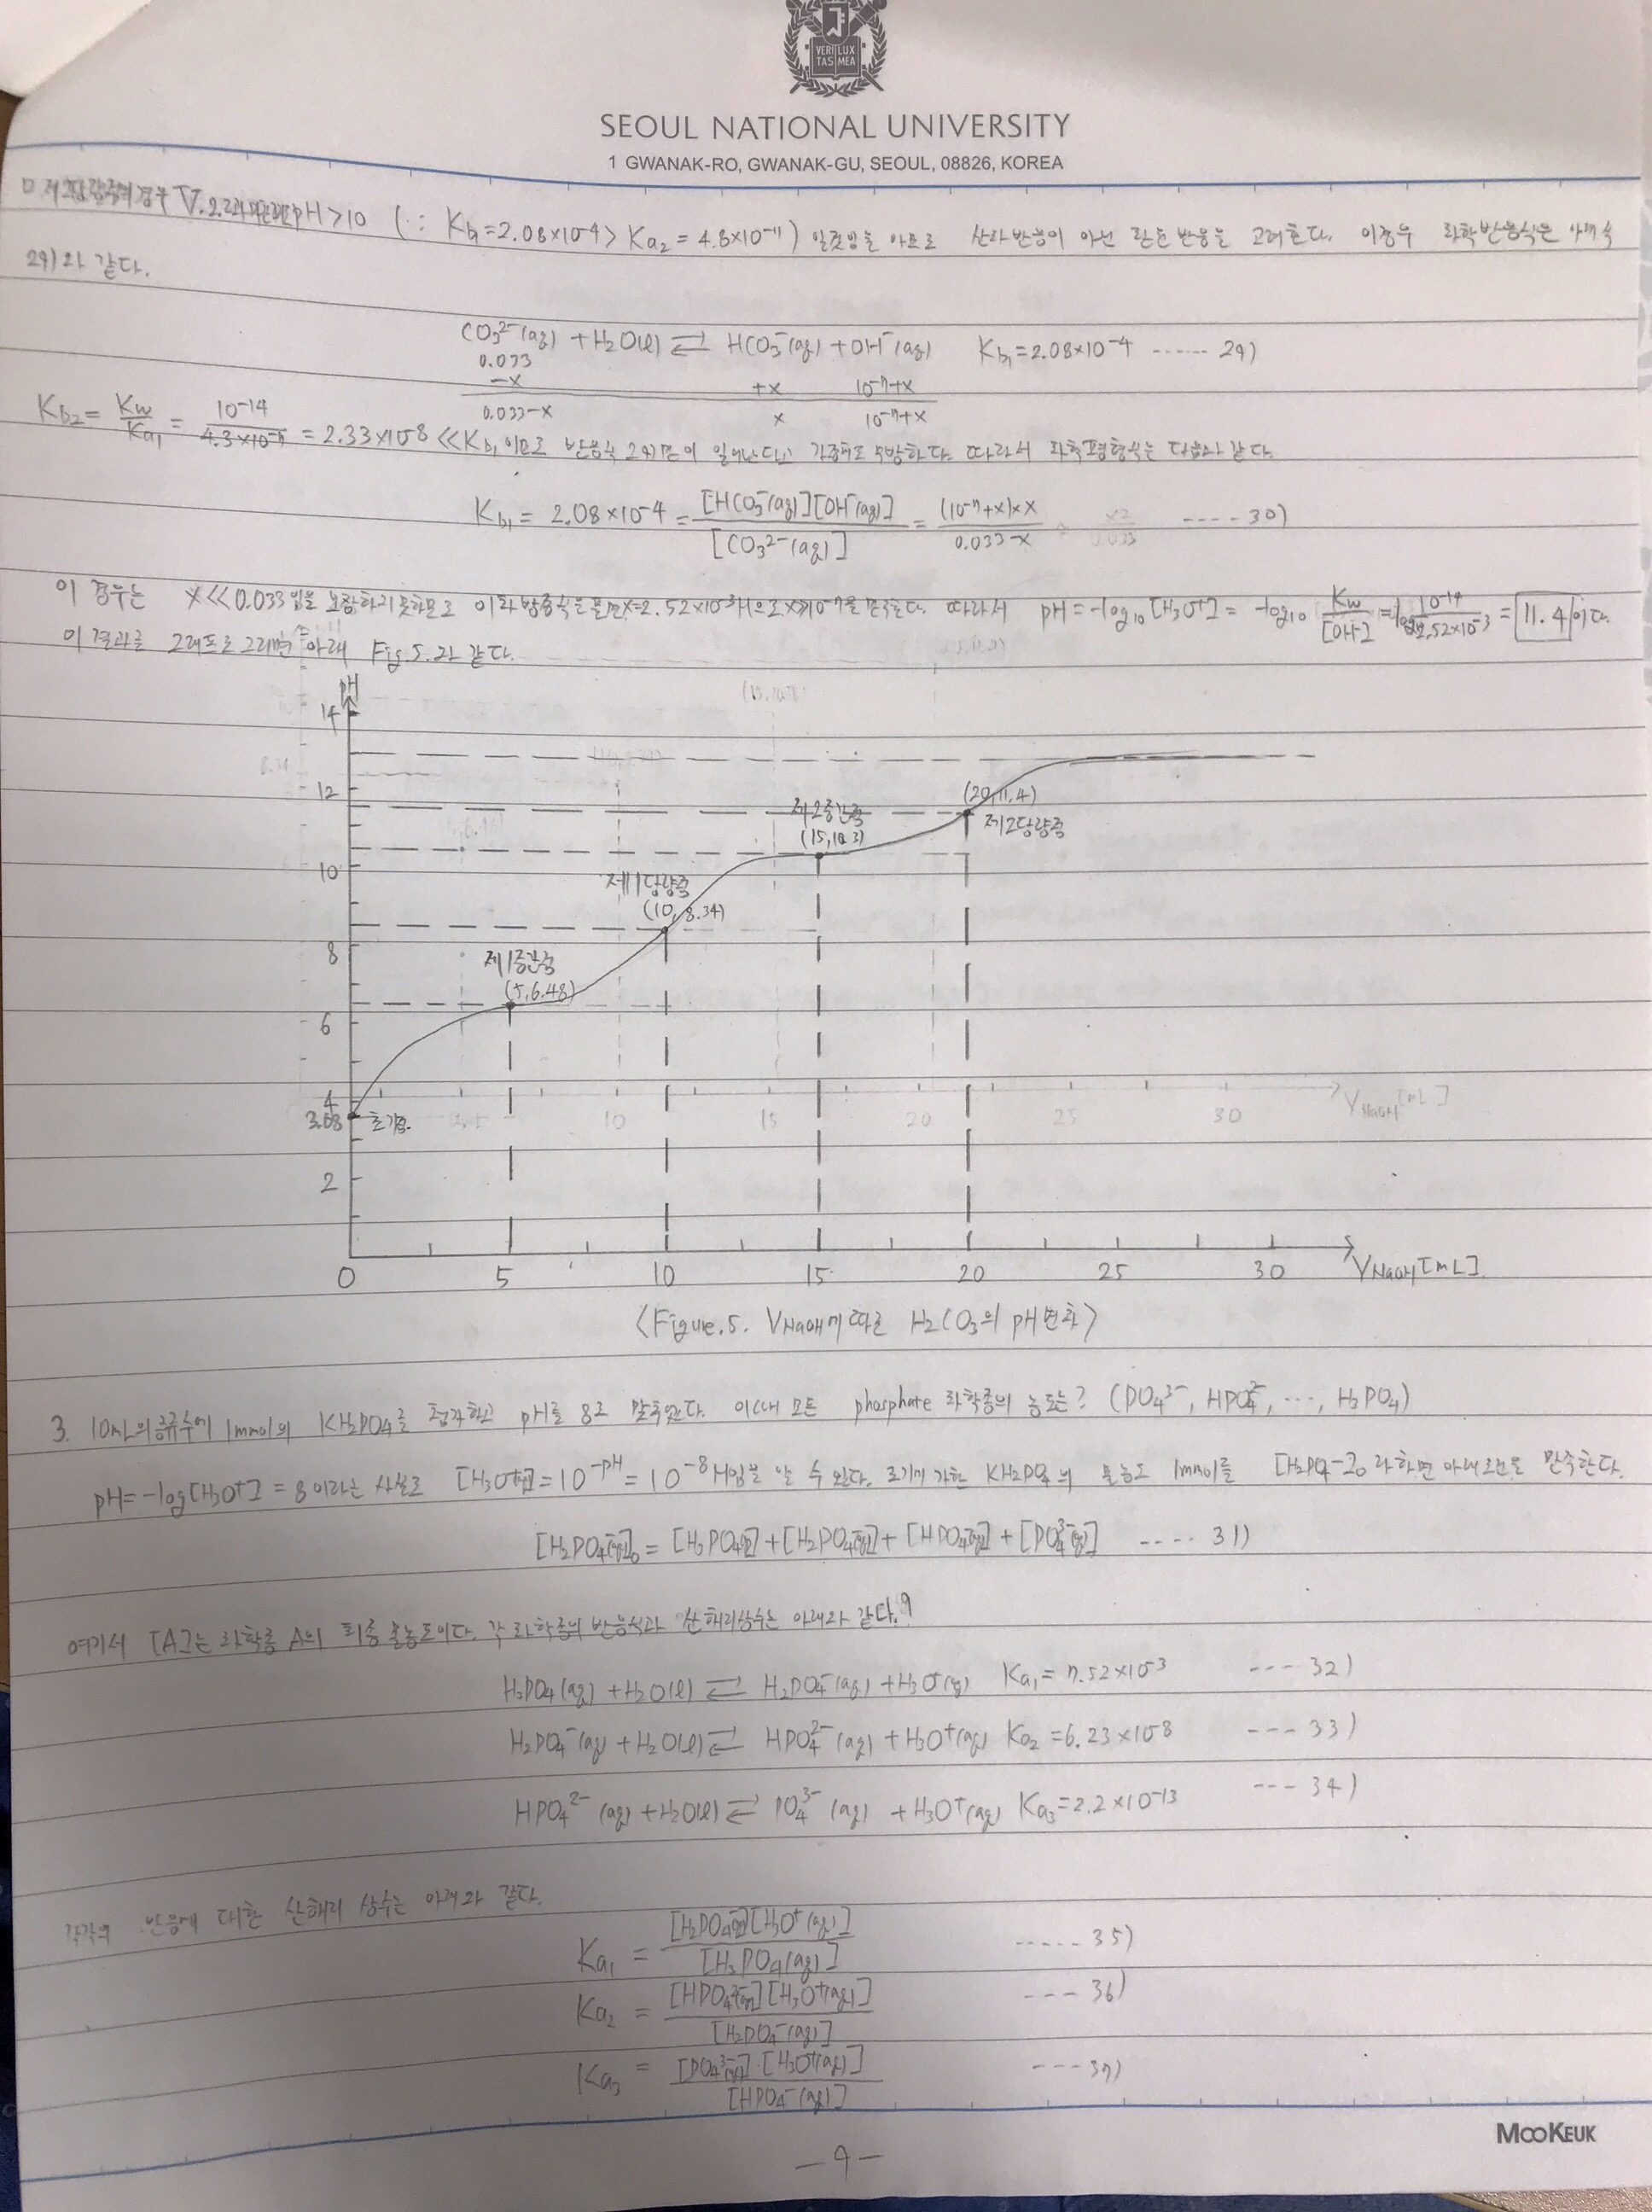 VERI LUX
TAS MEA
SEOUL NATIONAL UNIVERSITY
1 GWANAK-RO, GWANAK-GU, SEOUL, 08826, KOREA
pH>10 (∵ Kb₁=2.08×10⁻⁴ > Ka₂ = 4.8×10⁻¹¹) 일것임을 아므로 산화반응이 아닌 반응을 고려한다. 이경우 화학반응식은 아래 식
29)와 같다.
CO₃²⁻(aq) + H₂O(l) ⇄ HCO₃⁻(aq) + OH⁻(aq) Kb₁=2.08×10⁻⁴ ------ 29)
0.033
-x +x 10⁻⁷+x
0.033-x x 10⁻⁷+x
Kb₂ = Kw/Ka₁ = 10⁻¹⁴/4.3×10⁻⁷ = 2.33×10⁻⁸ ≪ Kb₁ 이므로 반응식 29)만이 일어난다고 가정해도 무방하다. 따라서 화학평형식는 다음과 같다.
Kb₁ = 2.08×10⁻⁴ = [HCO₃⁻(aq)][OH⁻(aq)]/[CO₃²⁻(aq)] = (10⁻⁷+x)×x/0.033-x ---- 30)
이 경우는 x≪0.033임을 보장하지 못하므로 이차방정식을 풀면 x=2.52×10⁻³ 만족한다. 따라서 pH = -log₁₀[H₃O⁺] = -log₁₀ Kw/[OH⁻] = 10⁻¹⁴/2.52×10⁻³ = 11.4 이다.
이 결과를 그래프로 그리면 아래 Fig.5.와 같다.
pH
14
12
10
8
6
4
3.68
2
초기점.
제1중간점
(5, 6.48)
제1당량점
(10, 8.34)
제2중간점
(15, 10.3)
(20, 11.4)
제2당량점
10 15 20 25 30 V_NaOH [mL]
0 5 10 15 20 25 30 V_NaOH [mL]
<Figure.5. V_NaOH에 따른 H₂CO₃의 pH변화>
3. 10mL의 증류수에 1mmol의 KH₂PO₄를 첨가하고 pH를 8로 맞추었다. 이때 모든 phosphate 화학종의 농도는? (PO₄³⁻, HPO₄²⁻, ⋯, H₃PO₄)
pH = -log[H₃O⁺] = 8 이라는 사실로 [H₃O⁺(aq)] = 10^-pH = 10⁻⁸ M임을 알 수 있다. 초기에 가한 KH₂PO₄의 몰농도 1mmol를 [H₂PO₄⁻]₀ 라하면 아래 만족한다.
[H₂PO₄⁻(aq)]₀ = [H₃PO₄(aq)] + [H₂PO₄⁻(aq)] + [HPO₄²⁻(aq)] + [PO₄³⁻(aq)] ---- 31)
여기서 [A]는 화학종 A의 최종 몰농도이다. 각 화학종의 반응식과 산해리상수는 아래와 같다.⁹
H₃PO₄(aq) + H₂O(l) ⇄ H₂PO₄⁻(aq) + H₃O⁺(aq) Ka₁ = 7.52×10⁻³ --- 32)
H₂PO₄⁻(aq) + H₂O(l) ⇄ HPO₄²⁻(aq) + H₃O⁺(aq) Ka₂ = 6.23×10⁻⁸ --- 33)
HPO₄²⁻(aq) + H₂O(l) ⇄ PO₄³⁻(aq) + H₃O⁺(aq) Ka₃ = 2.2×10⁻¹³ --- 34)
각각의 반응에 대한 산해리 상수는 아래와 같다.
Ka₁ = [H₂PO₄⁻(aq)][H₃O⁺(aq)]/[H₃PO₄(aq)] ----- 35)
Ka₂ = [HPO₄²⁻(aq)][H₃O⁺(aq)]/[H₂PO₄⁻(aq)] --- 36)
Ka₃ = [PO₄³⁻(aq)]·[H₃O⁺(aq)]/[HPO₄⁻(aq)] --- 37)
MOOKEUK
-9-